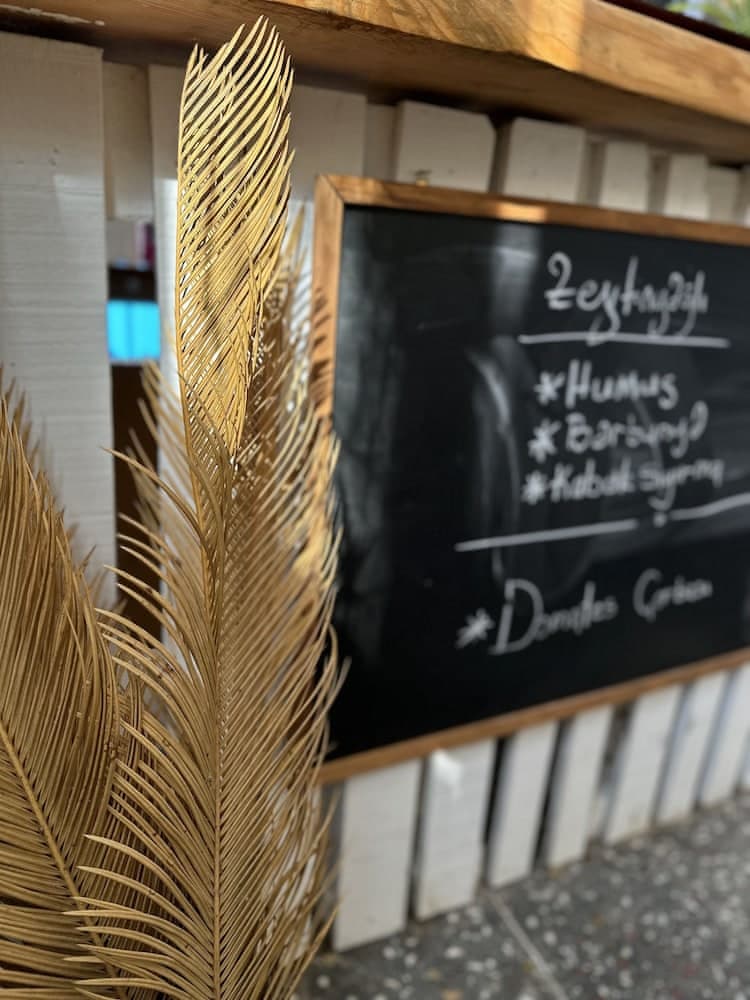 Zeytinyağlı
*Humus
*Barbunya
*Kabak Sıyırma
*Domates Çorbası